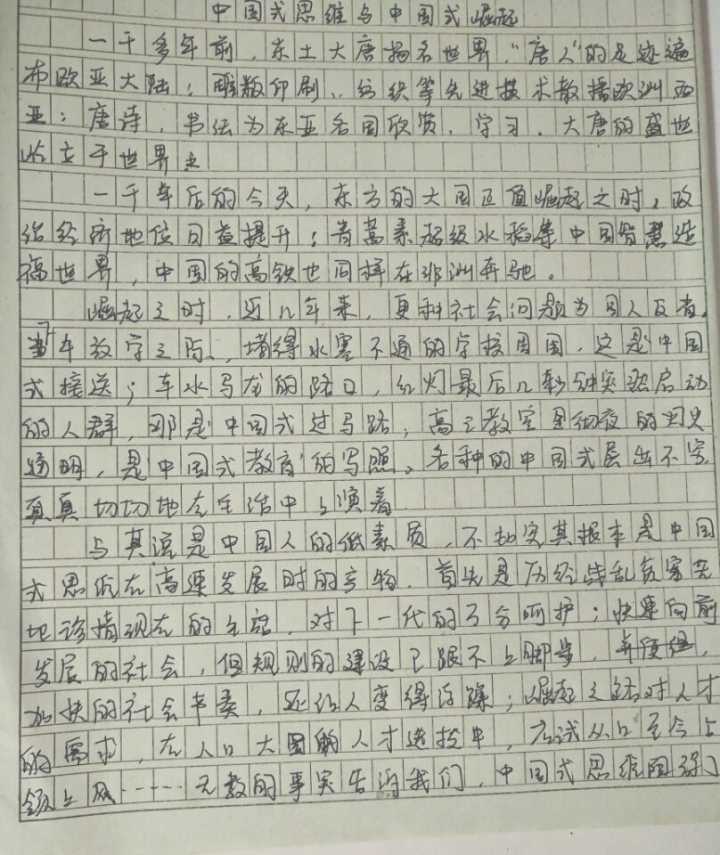 中国式思维与中国式崛起
一千多年前，东土大唐扬名世界，“唐人”的足迹遍
布欧亚大陆；雕版印刷、纺织等先进技术散播欧洲西
亚；唐诗，书法为东亚各国欣赏，学习。大唐的盛世
屹立于世界之
一千年后的今天，东方的大国正值崛起之时，政
治经济地位日益提升；青蒿素超级水稻等中国智慧造
福世界，中国的高铁也同样在非洲奔驰。
崛起之时，近几年来，更种社会问题为国人反省。
当车放学之际，堵得水塞不通的学校周围，这是中国
式接送；车水马龙的路口，红灯最后几秒钟突然启动
的人群，那是中国式过马路；高三教室里彻夜的灯火
通明，是中国式教育的写照。各种的中国式层出不穷
真真切切地在生活中上演着
与其说是中国人的低素质，不如实其根本是中国
式思维在高速发展时的产物。首先是历经战乱贫寒
珍惜现在的生活，对下一代的万分呵护；快速向前
发展的社会，但规则的建设已跟不上脚步，
加快的社会节奏，还让人变得浮躁；崛起之路对人才
的需求，在人口大国的人才选拔中，应试从古至今占
领上风……无数的事实告诉我们，中国式思维